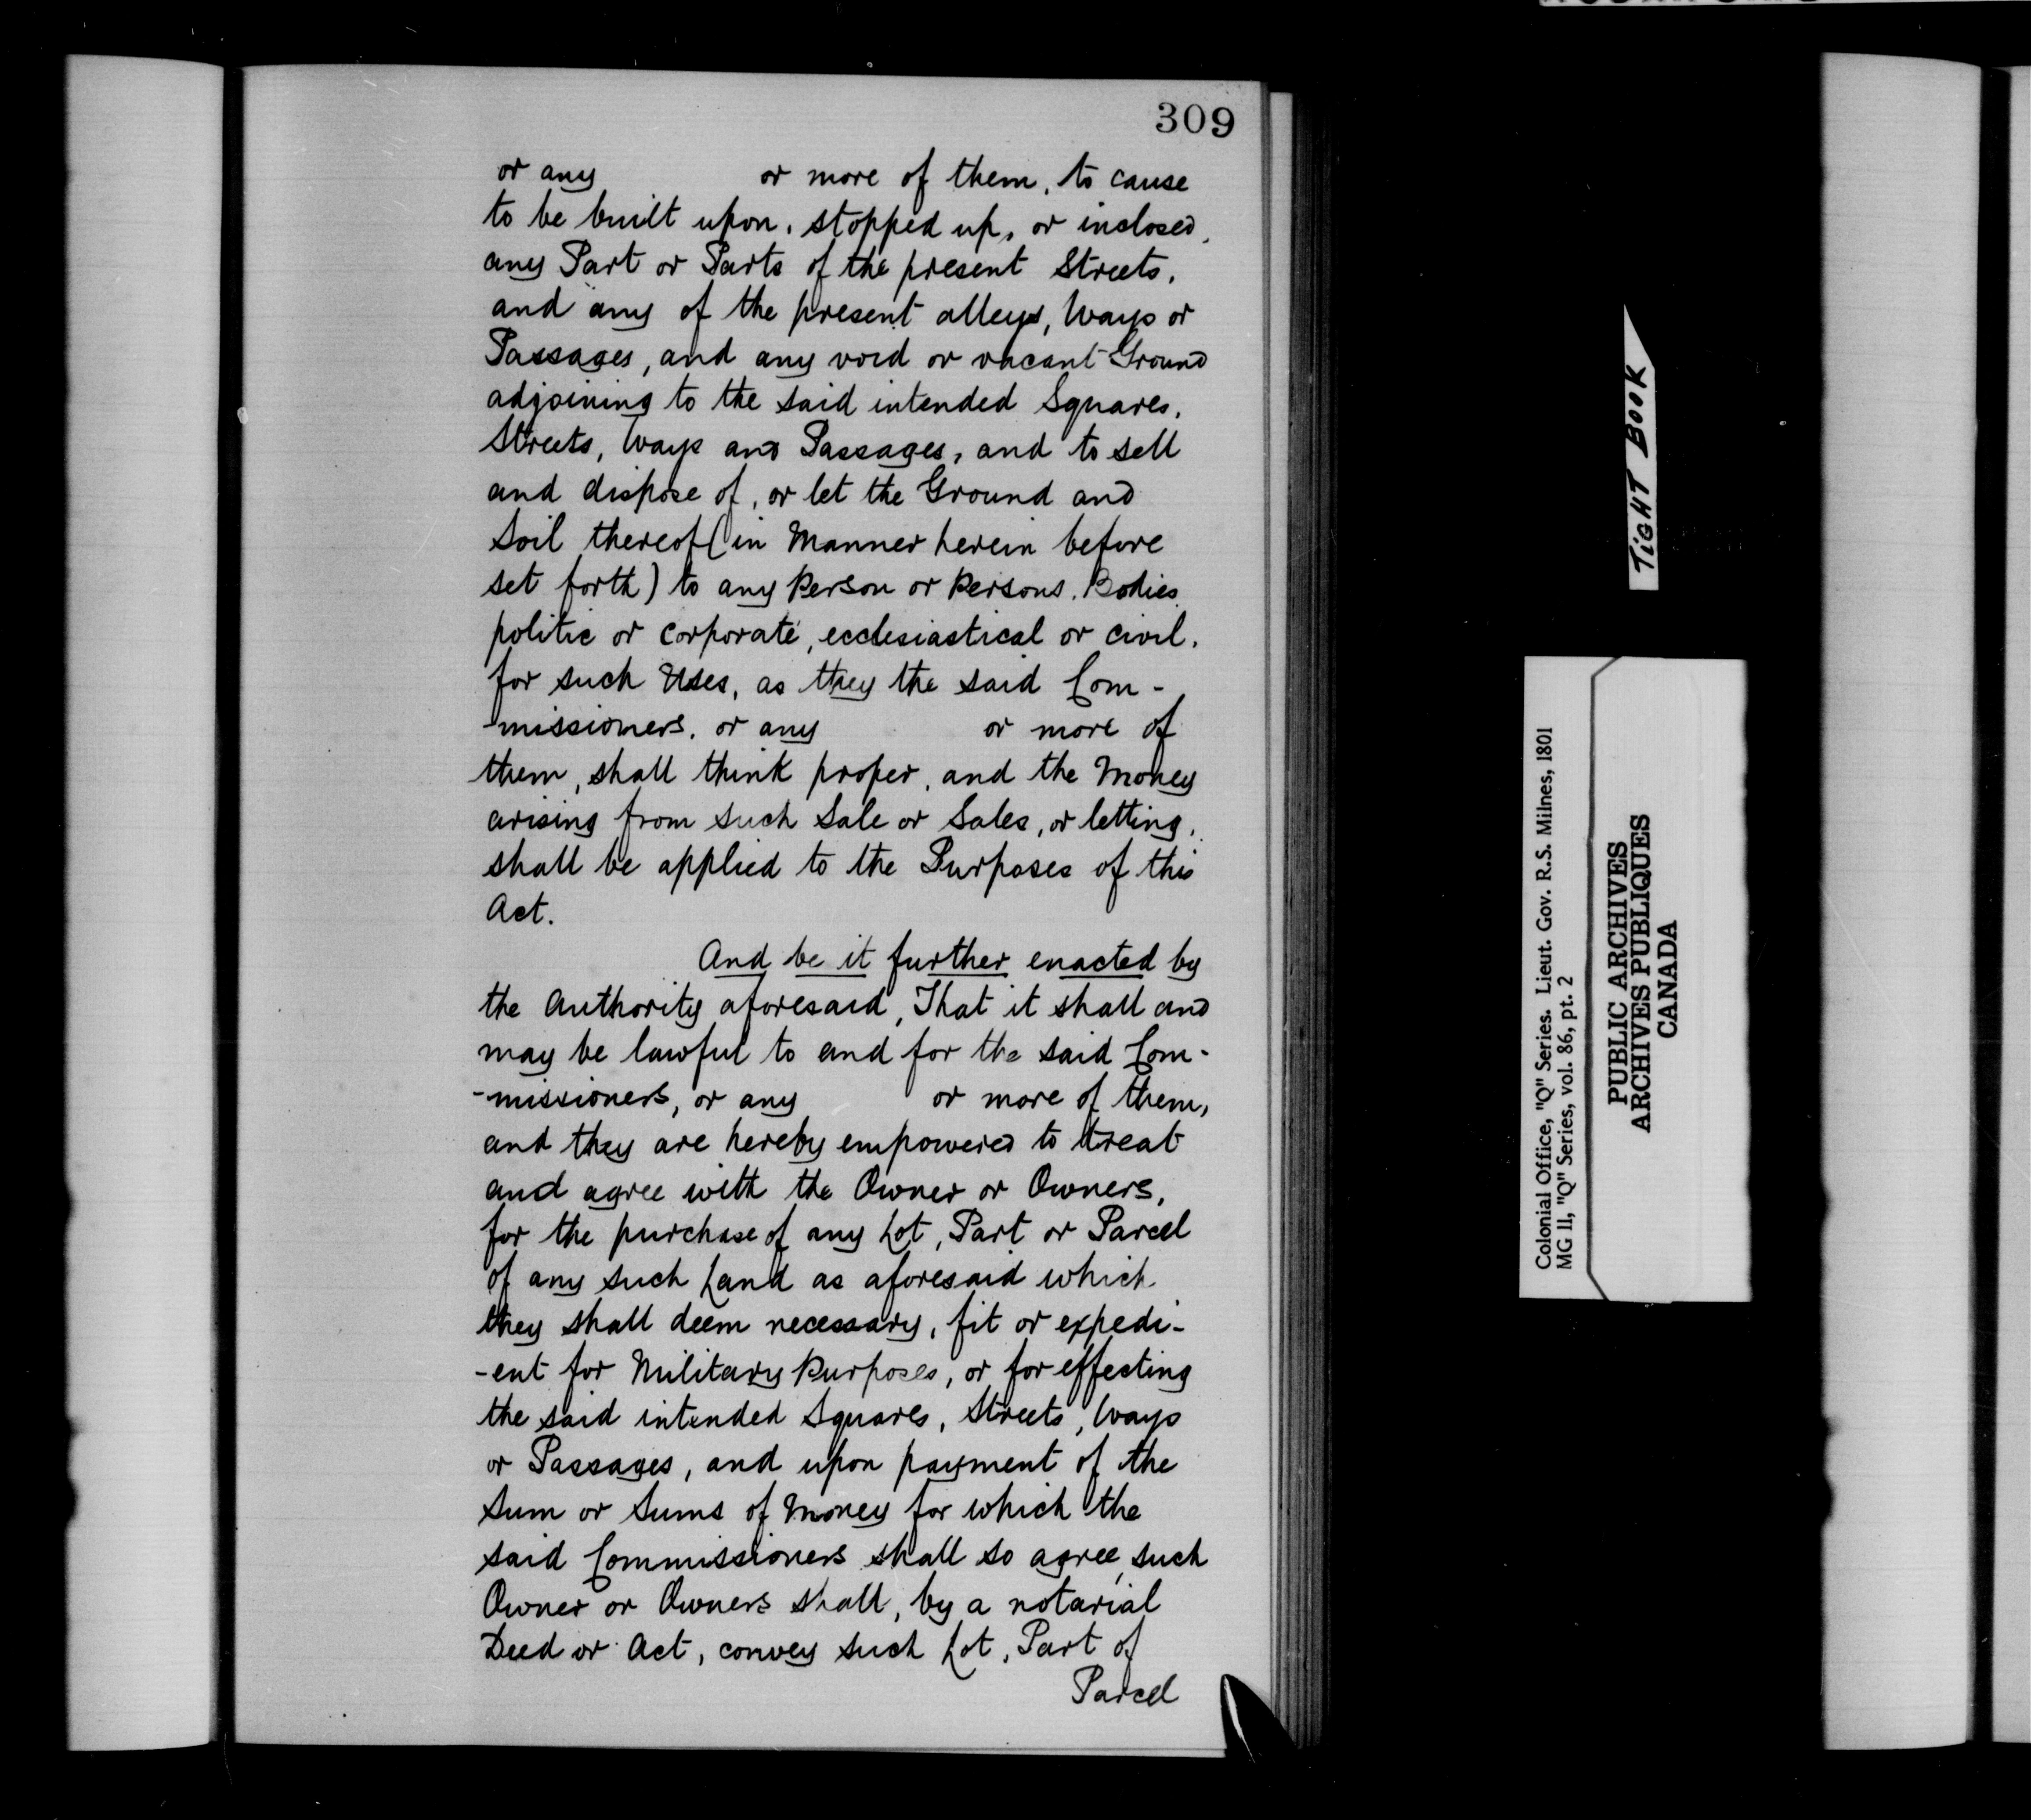 309
or any or more of them, to cause
to be built upon, stopped up, or inclosed,
any Part or Parts of the present Streets,
and any of the present alleys, Ways or
Passages, and any void or vacant Ground
adjoining to the said intended Squares,
Streets, Ways and Passages, and to sell
and dispose of, or let the Ground and
Soil thereof (in Manner herein before
set forth) to any Person or Persons, Bodies
politic or corporate, ecclesiastical or civil,
for such Uses, as they the said Com-
-missioners, or any or more of
them, shall think proper, and the Money
arising from such Sale or Sales, or letting,
shall be applied to the Purposes of this
Act.
And be it further enacted by
the Authority aforesaid, That it shall and
may be lawful to and for the said Com-
-missioners, or any or more of them,
and they are hereby empowered to treat
and agree with the Owner or Owners,
for the purchase of any Lot, Part or Parcel
of any such Land as aforesaid which
they shall deem necessary, fit or expedi-
-ent for Military Purposes, or for effecting
the said intended Squares, Streets, Ways
or Passages, and upon payment of the
Sum or Sums of Money for which the
said Commissioners shall so agree, such
Owner or Owners shall, by a notarial
Deed or Act, convey such Lot, Part of
Parcel
TIGHT BOOK
Colonial Office, "Q" Series. Lieut. Gov. R.S. Milnes, 1801
MG 11, "Q" Series, vol. 86, pt. 2
PUBLIC ARCHIVES
ARCHIVES PUBLIQUES
CANADA